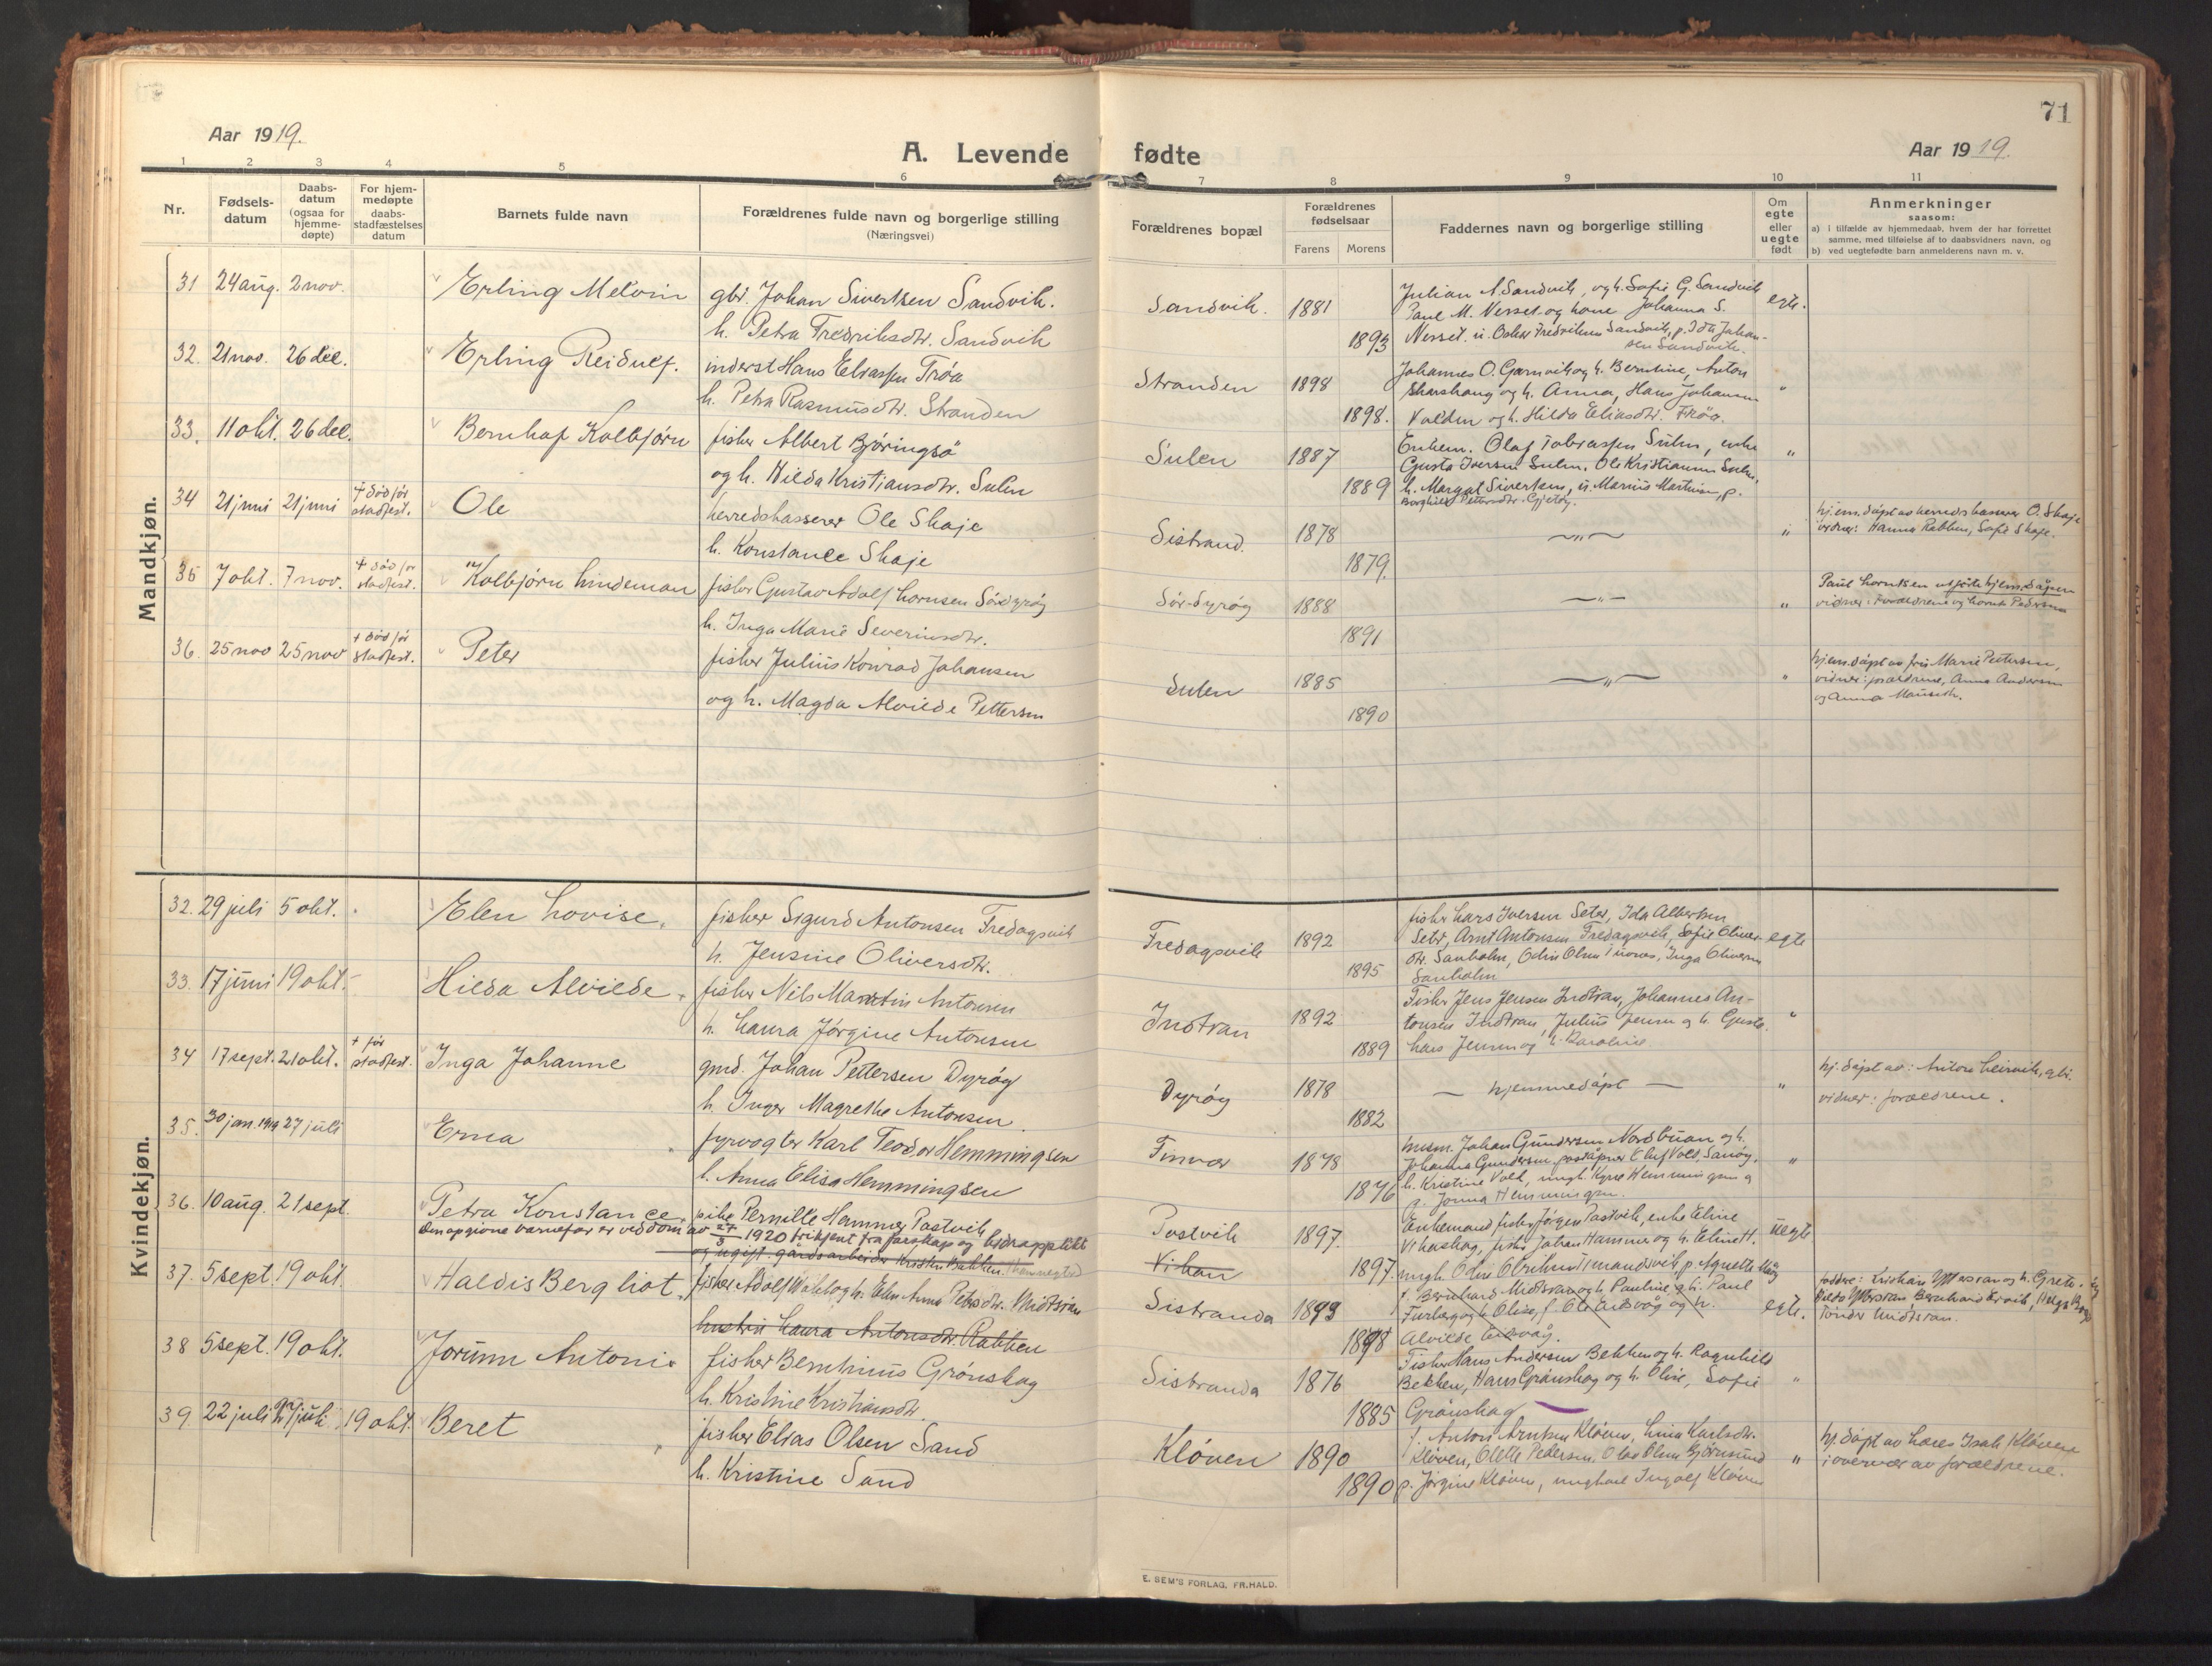 71
Aar 1919.
A. Levende fødte
Aar 1919.
1 2 3 4 5 6 7 8 9 10 11
Nr.
Fødsels-
datum
Daabs-
datum
(ogsaa for
hjemme-
døpte)
For hjem-
medøpte
daabs-
stadfæstelses
datum
Barnets fulde navn
Forældrenes fulde navn og borgerlige stilling
(Næringsvei)
Forældrenes bopæl
Forældrenes
fødselsaar
Farens Morens
Faddernes navn og borgerlige stilling
Om
egte
eller
uegte
født
Anmerkninger
saasom:
a) i tilfælde av hjemmedaab, hvem der har forrettet
samme, med tilføielse af to daabsvidners navn, og
b) ved uegtefødte barn anmelderens navn m. v.
Mandkjøn.
31 24 aug. 2 nov. Erling Melvin gbr. Johan Sivertsen Sandvik.
h. Petra Fredriksdtr. Sandvik
Sandvik. 1881
1893
Julian A. Sandvik, og h. Sofie G. Sandvik
Paul M. Nesset og kone Johanna S.
egte.
32. 21 nov. 26 dec. Erling Reidulf. inderst Hans Eliassen Trøa
h. Petra Rasmusdtr. Stranden
Stranden 1898
1898.
Johannes O. Garnvik og h. Berntine, Anton
og h. Anna, Hans Johansen
og h. Hilda Eliasdtr. Trøa.
"
33. 11 okt. 26 dec. Bernhof Kolbjørn fisker Albert Bjøringsø
og h. Hilda Kristiansdtr. Sulen
Sulen 1887
1889
Enkem. Olaf Tobiassen Sulen, enke
Gusta Iversen Sulen, Ole Kristiansen Sulen,
h. Margot Sivertsen, u. Marius Martinsen, p.
Borghild Pettersdtr. Gjetøy.
"
34 21 juni 21 juni † død før
stadfest.
Ole herredskasserer Ole Skaje
h. Konstance Skaje
Sistrand. 1878
1879.
— " —
"
hjem.døpt av herredskasserer O. Skaje
vidner: Hanna Rabben, Sofie Skaje.
35 7 okt. 7 nov. † død før
stadfest.
Kolbjørn Lindeman fisker Gustav Adolf Lornsen Sørdyrøy
h. Inga Marie Severinsdtr.
Sør-Dyrøy 1888
1891
— " —
"
Paul Lorntsen utførte hjem.dåpen
vidner: Forældrene og Pedersen
36. 25 nov 25 nov † død før
stadfest.
Peter fisker Julius Konrad Johansen
og h. Magda Alvilde Pettersen
Sulen 1885
1890
— " —
"
hjem.døpt av frk Marie Pettersen,
vidner: forældrene, Anna Andersen
og Anna
Kvindekjøn.
32. 29 juli 5 okt. Elen Lovise. fisker Sigurd Antonsen Fredagsvik
h. Jensine Oliversdtr.
Fredagsvik 1892
1895
fisker Lars Iversen Seter, Ida Albertsen
Seter, Arnt Antonsen Fredagsvik, Sofie Oliver-
dtr. Sanholm, Odin Olsen, Inga Oliversen
Sanholm
egte
33. 17 juni 19 okt. Hilda Alvilde. fisker Nils Martin Antonsen
h. Laura Jørgine Antonsen
Indtran 1892
1889
Fisker Jens Jensen Indtran, Johannes An-
tonsen Indtran, Julius Jensen og h. Gusta.
Lars Jensen og h. Karoline
"
34 17 sept. 21 okt. † før
stadfest.
Inga Johanne gmd. Johan Pettersen Dyrøy
h. Inger Magrethe Antonsen.
Dyrøy 1878
1882
— hjemmedøpt —
"
hj. døpt av: Anton Leirvik, gbr.
vidner: forældrene.
35. 30 jan. 1919 27 juli Erna fyrvogter Karl Teodor Hemmingsen
h. Anna Elisa Hemmingsen
Finvær 1878
1876
husm. Johan Gundersen Nordbuan og h.
Johanna Gundersen, poståpner Olaf Vold, Sanøy,
h. Kristine Vold, ungk. Kyrre Hemmingsen og
p. Jonna Hemmingsen.
"
36. 10 aug. 21 sept. Petra Konstance pike Pernille Hammer Pastvik
Den opgivne barnefar er ved dom av 27/3 1920 frikjent fra farskap og bidragsplikt
og ugift gårdsarbeider Kristen Bakken
Postvik 1897.
Vikan 1897
Enkemand fisker Jørgen Pastvik, enke Eline
Vikaskag, fisker Johan Hammer og h. Eline H.
uegte
37. 5 sept 19 okt. Haldis Bergliot. fisker Adolf Wahl og h. Elen Anna Petersdtr. Midtsian
hustru Laura Antonsdtr. Rabben
Sistranda 1893
1898
f. Bernhard Midtsian og h. Pauline, g. h. Paul
og h. Oline, f. Ole og h.
Alvilde
egte.
38 5 sept. 19 okt. Jorunn Antonie fisker Bernhinus Grønskag
h. Kristine Kristiansdtr.
Sistranda 1876
1885
Fisker Hans Andersen Bekken og h. Ragnhild
Bekken, Hans Grønskag og h. Oline, Sofie
Grønskag
"
39. 22 juli 27 juli 19 okt. Beret fisker Elias Olsen Sand
h. Kristine Sand
Kløven 1890
1890
f. Anton Arntsen Kløven, Lina Karlsdtr.
Kløven, Olette Pedersen, Olav Olsen Bjørnsund
p. Jørgine Kløven, ungkarl Ingolf Kløven
"
hj. døpt av Lars Isak Kløven
i overvær av forældrene.
E. SEM'S FORLAG, FR.HALD.